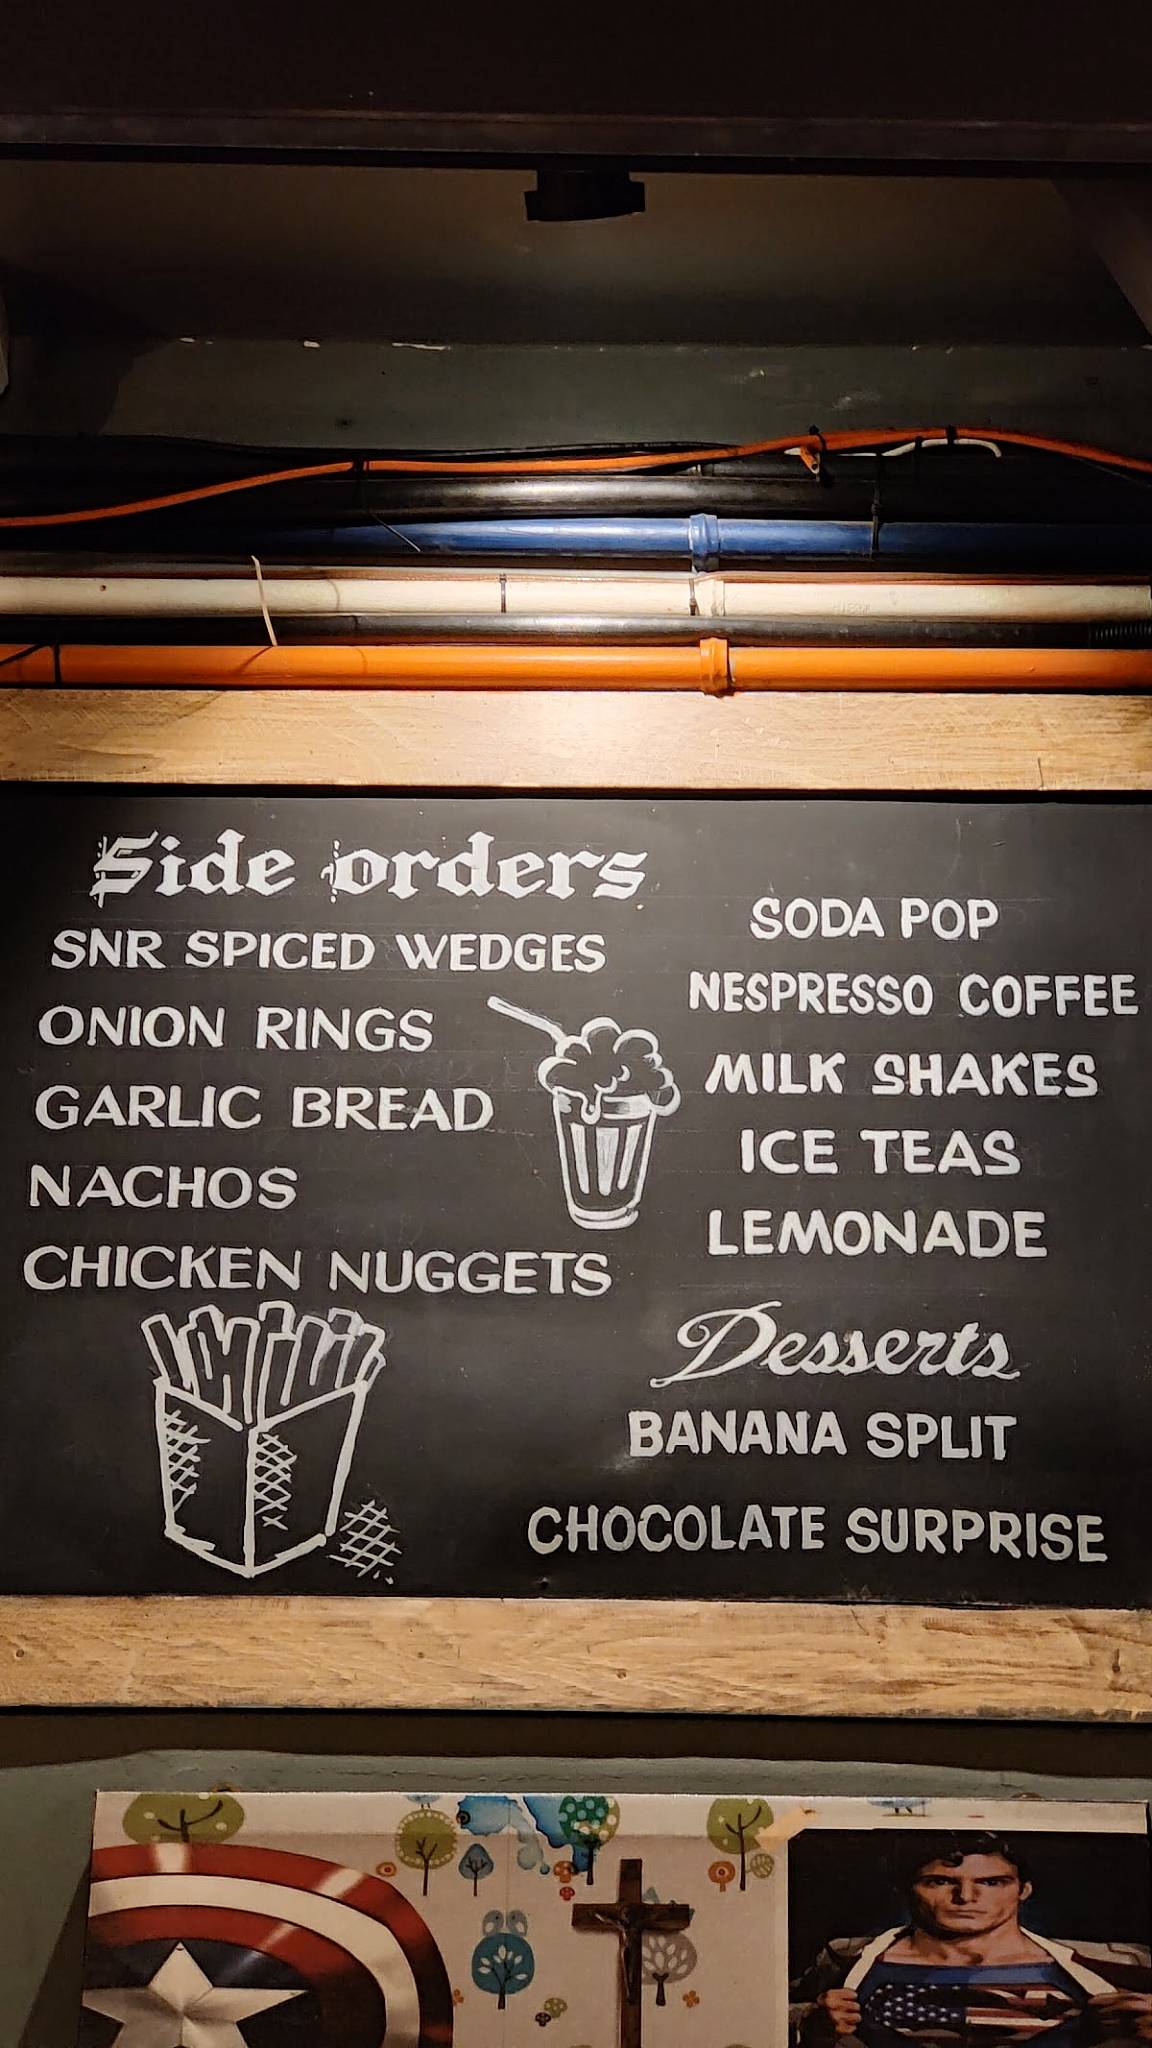 Side orders
SNR SPICED WEDGES
ONION RINGS
GARLIC BREAD
NACHOS
CHICKEN NUGGETS
SODA POP
NESPRESSO COFFEE
MILK SHAKES
ICE TEAS
LEMONADE
Desserts
BANANA SPLIT
CHOCOLATE SURPRISE